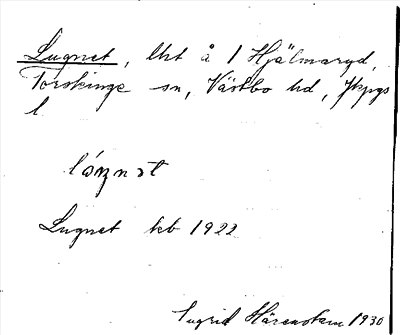 Lugnet, lht å 1 Hjälmaryd,
Torskinge sn, Västbo hd, Jkpgs
l
Lugnet kb 1922
Ingrid 1930